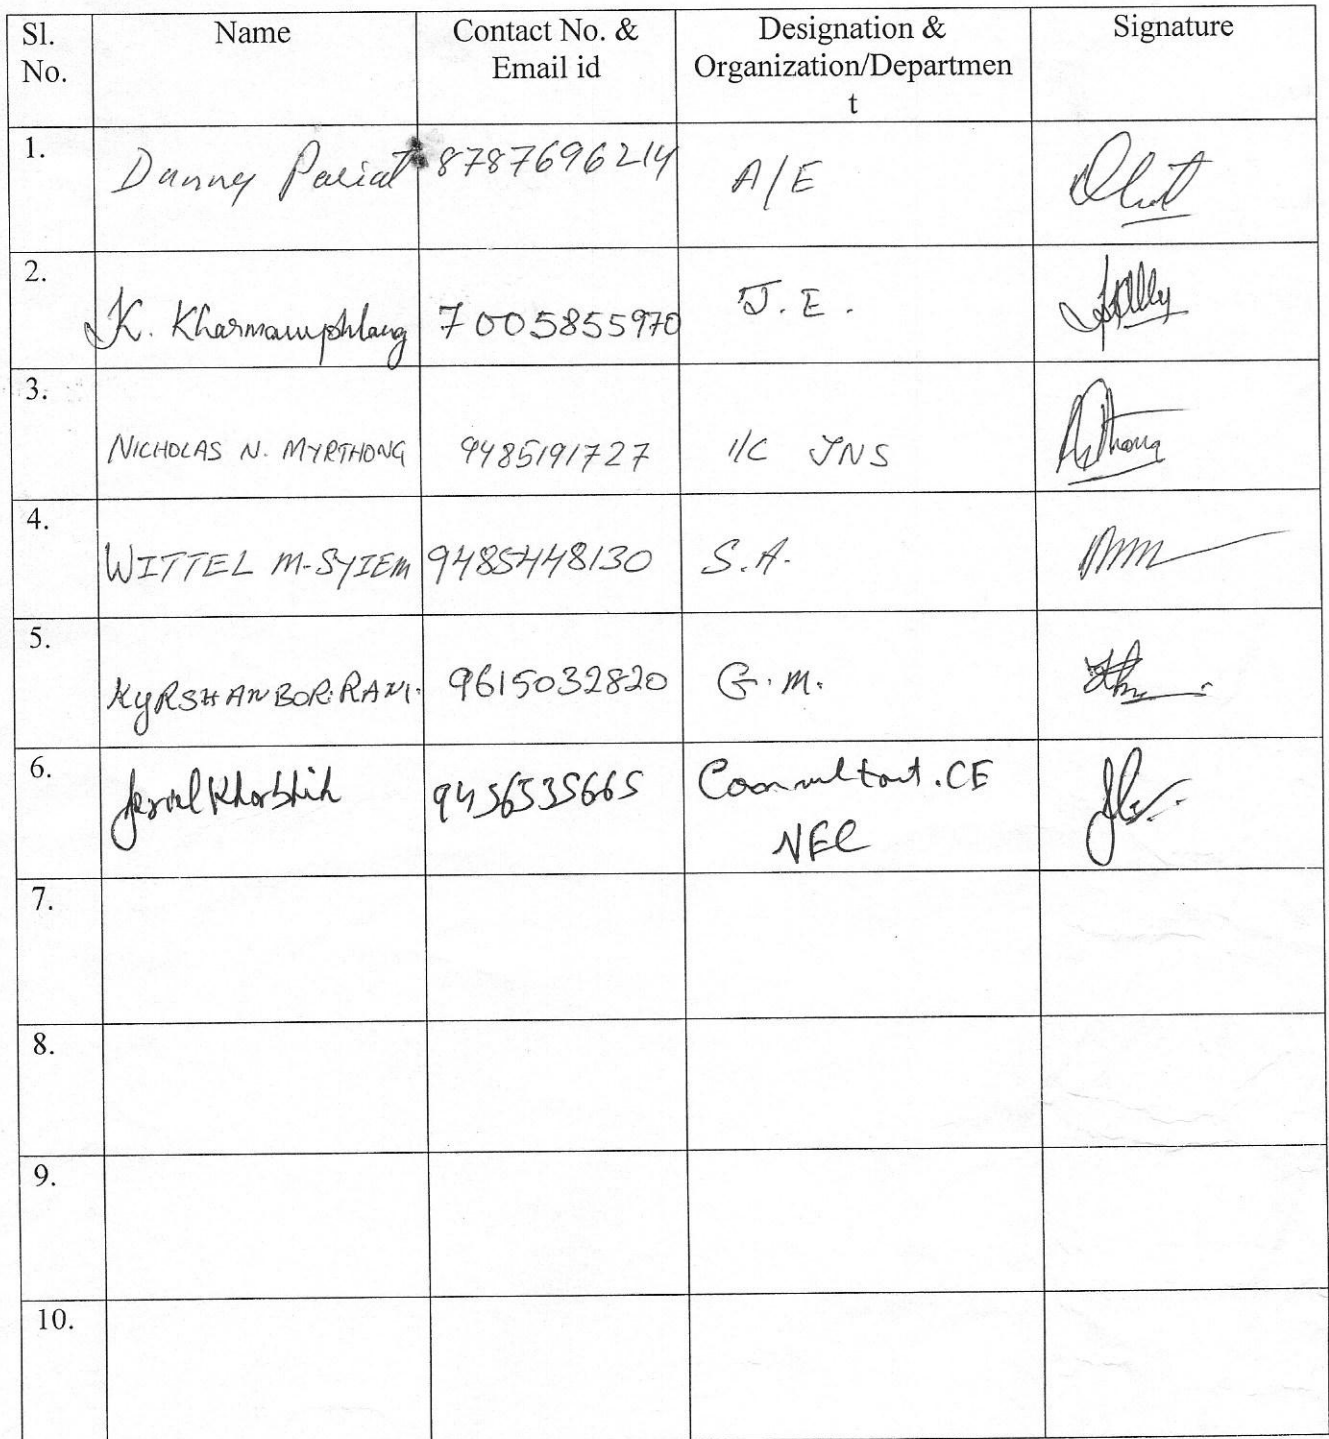 Sl. No. Name Contact No. & Email id Designation & Organization/Departmen t Signature
1. Danny Pariat 8787696214 A/E
2. K. Kharmawphlang 7005855970 J.E.
3. NICHOLAS N. MYRTHONG 9485191727 I/C JNS
4. WITTEL M. SYIEM 9485448130 S.A.
5. KYRSHANBOR. RANI. 9615032820 G.M.
6. Khorbhih 9456535665 Consultant. CE
NEC
7.
8.
9.
10.